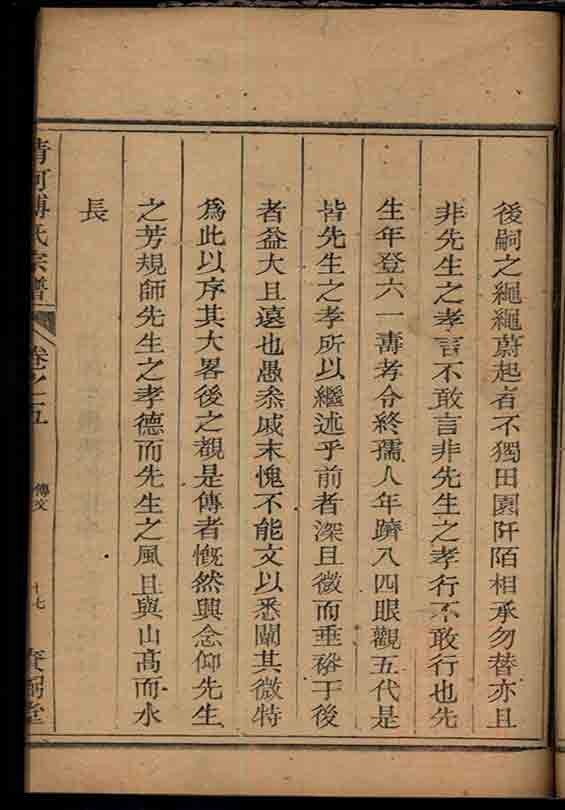 後嗣之繩繩蔚起者不獨田園阡陌相承勿替亦且
非先生之孝言不敢言非先生之孝行不敢行也先
生年登六一壽考令終孺人年躋八四眼觀五代是
皆先生之孝所以繼述乎前者深且微而垂裕于後
者益大且遠也愚叅戚末愧不能文以悉闡其微特
爲此以序其大畧後之覩是傳者慨然興念仰先生
之芳規師先生之孝德而先生之風且與山高而水
長
清河傅氏宗譜
卷之五
傳文
十七
堂